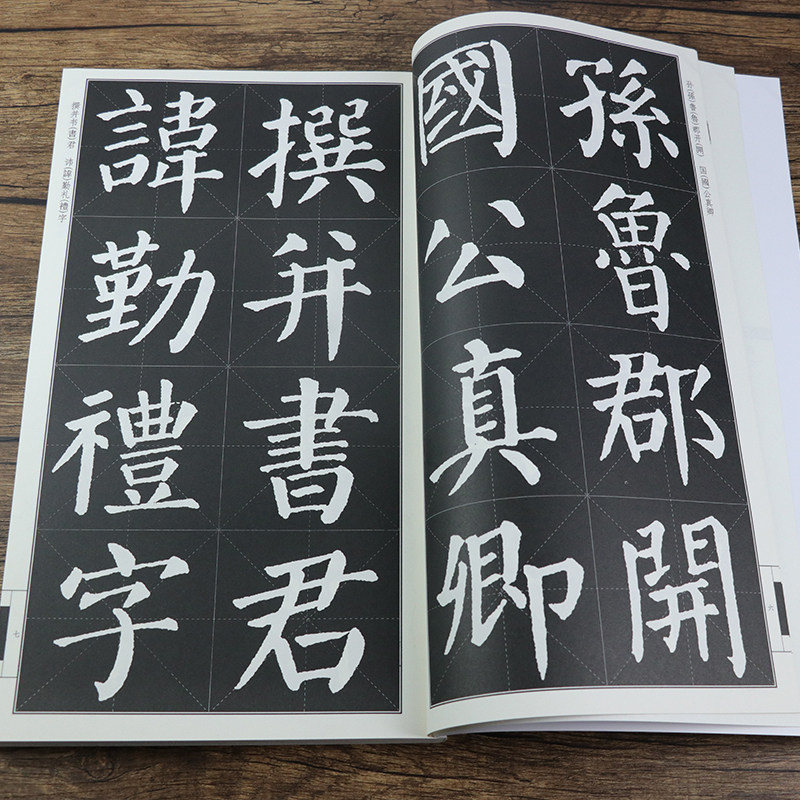 孫魯郡開
國公真卿
孙(孫)鲁(魯)郡开(開) 国(國)公真卿
六
撰并書君
諱勤禮字
撰并书(書)君 讳(諱)勤礼(禮)字
七